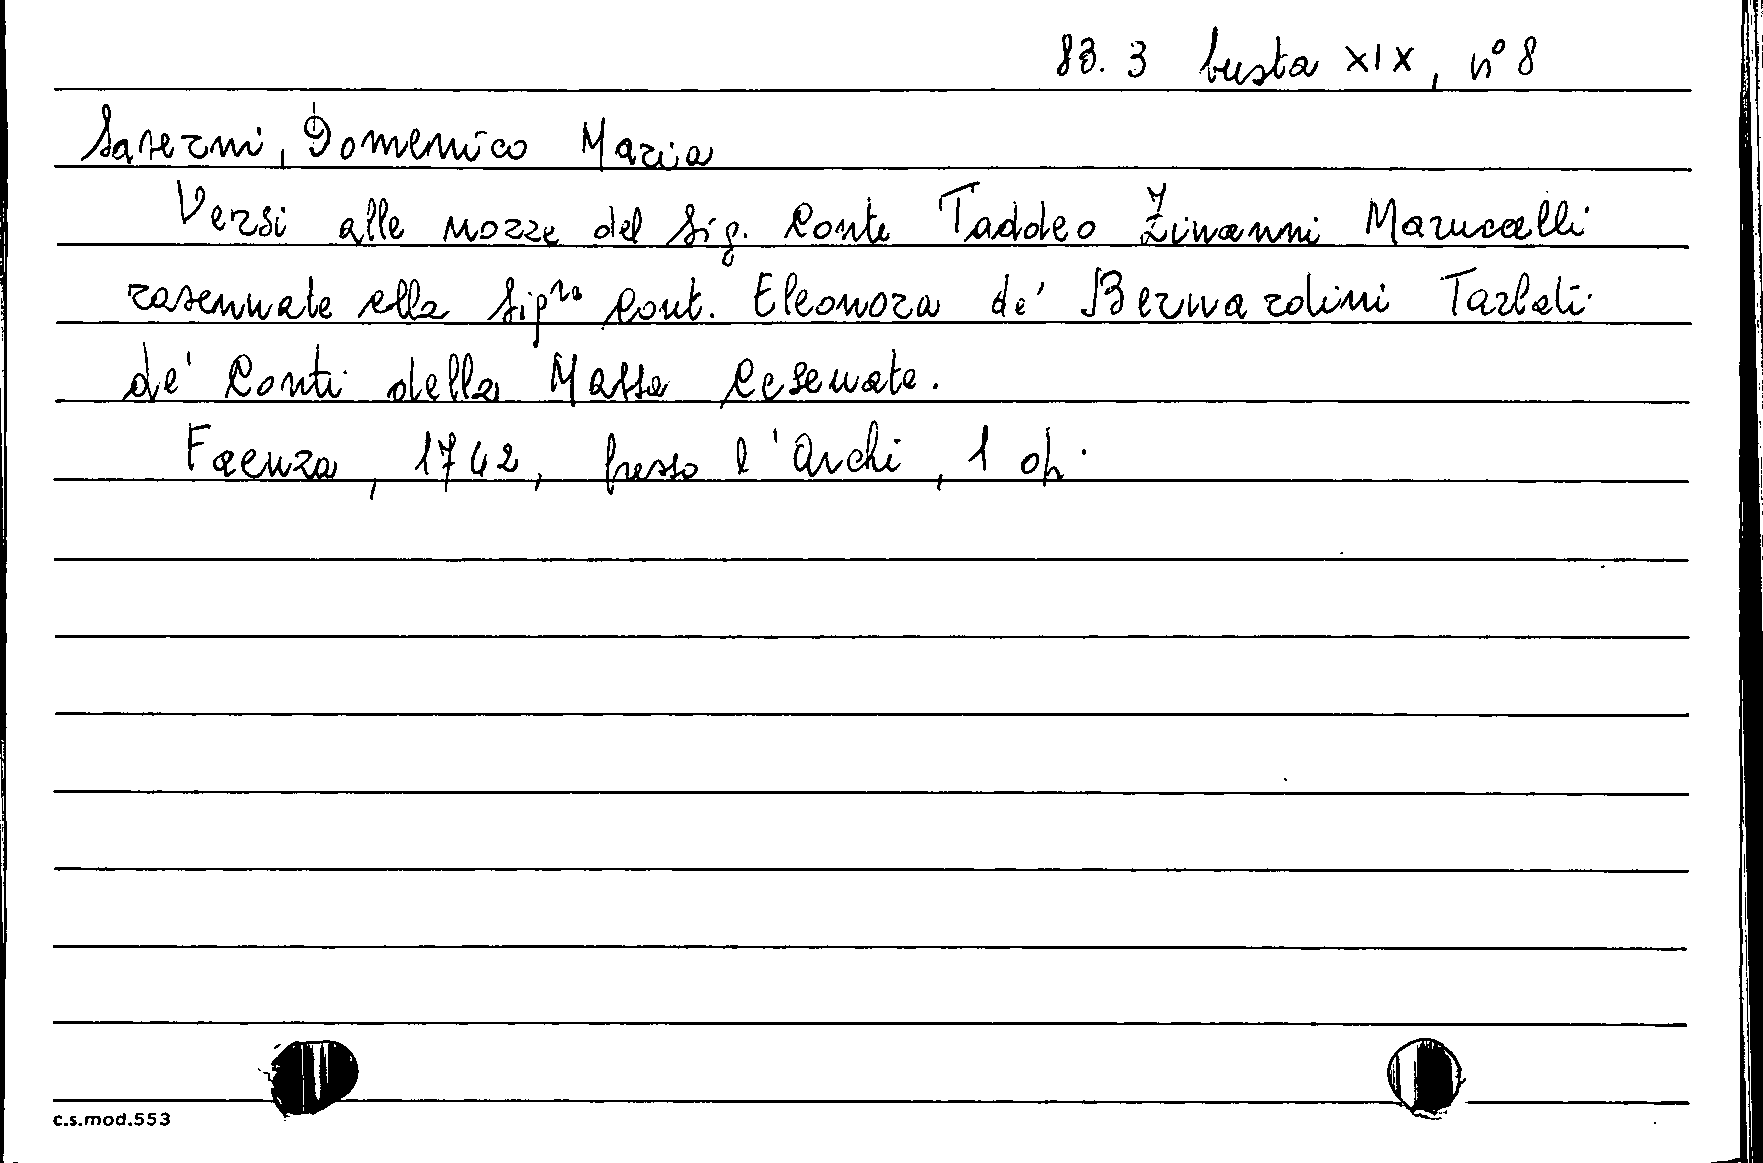 83. 3 busta XIX, n° 8
Saverni, Domenico Maria
Versi alle nozze del Sig. Conte Taddeo Zinanni Marucelli
ravennate colla Sig.ra Cont. Eleonora de' Bernardini Tarlati
de' Conti della Massa Cesenate.
Faenza, 1742, presso l'Archi, 1 op.
c.s.mod.553